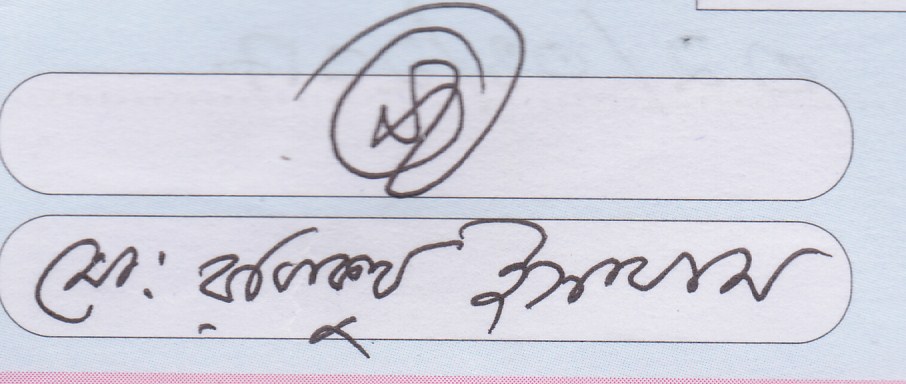 মো: রফিকুল ইসলাম